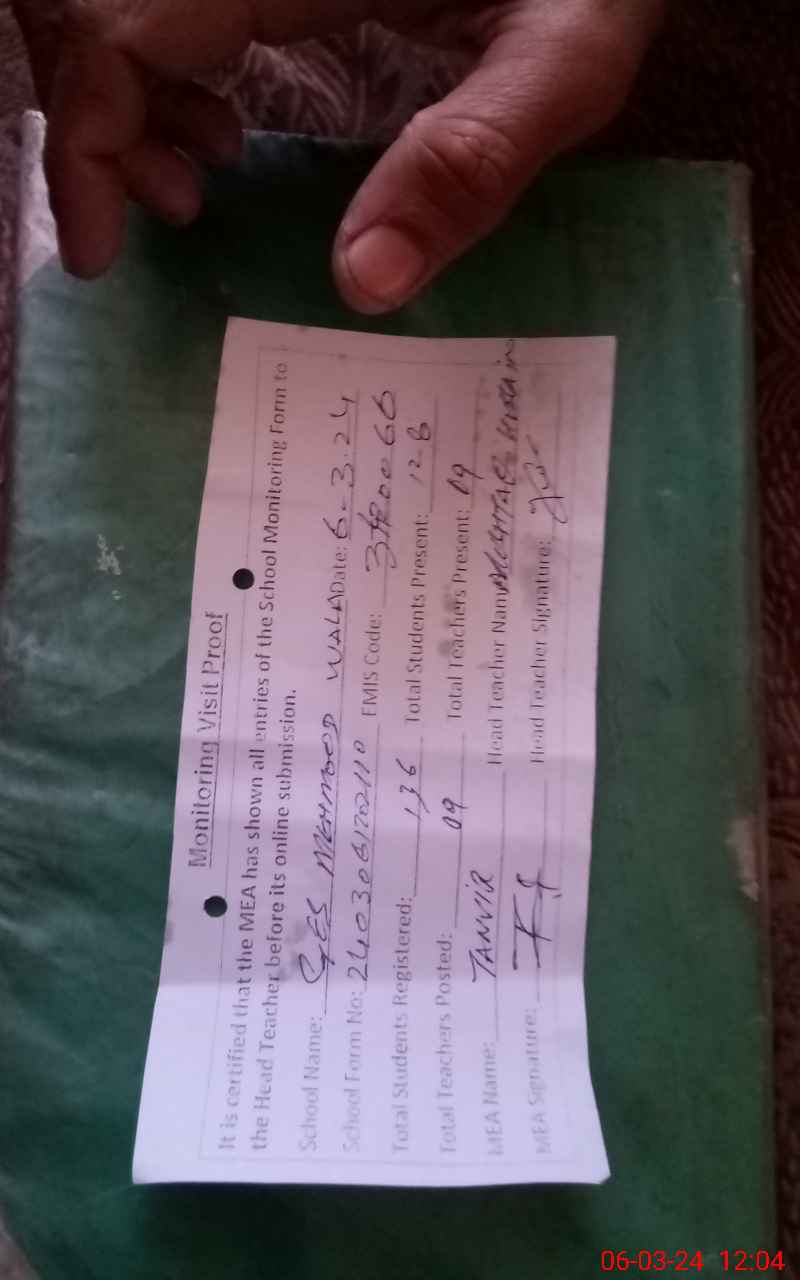 Monitoring Visit Proof
It is certified that the MEA has shown all entries of the School Monitoring Form to
the Head Teacher before its online submission.
School Name: GES MEHMOOD WALA Date: 6-3.24
School Form No: 2403061702110 EMIS Code:
Total Students Registered: 136 Total Students Present: 128
Total Teachers Posted: 09 Total Teachers Present: 09
MEA Name: TANVIR Head Teacher Name
MEA Signature: Head Teacher Signature:
06-03-24 12:04